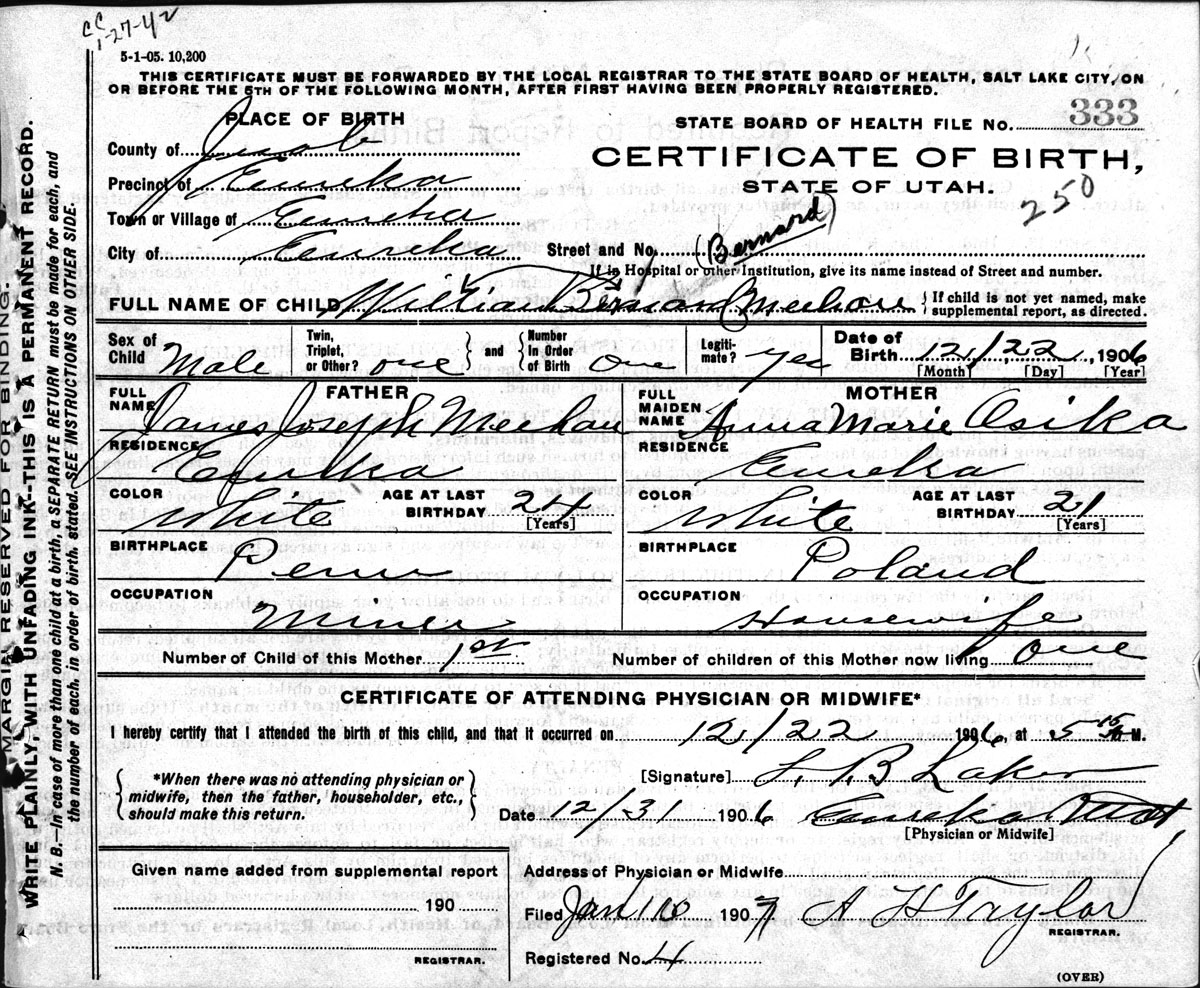 CC
1-27-42
5-1-05. 10,200
THIS CERTIFICATE MUST BE FORWARDED BY THE LOCAL REGISTRAR TO THE STATE BOARD OF HEALTH, SALT LAKE CITY, ON
OR BEFORE THE 5TH OF THE FOLLOWING MONTH, AFTER FIRST HAVING BEEN PROPERLY REGISTERED.
PLACE OF BIRTH
County of Juab
Precinct of Eureka
Town or Village of Eureka
City of Eureka
STATE BOARD OF HEALTH FILE No. 333
CERTIFICATE OF BIRTH,
STATE OF UTAH.
250
Street and No.
(Bernard)
If in Hospital or other Institution, give its name instead of Street and number.
FULL NAME OF CHILD William Meehan
{ If child is not yet named, make
supplemental report, as directed.
Sex of Child Male
Twin, Triplet, or Other? one
and
Number in Order of Birth one
Legitimate? yes
Date of Birth 12, 22, 1906
[Month] [Day] [Year]
FATHER
FULL NAME James Joseph Meehan
RESIDENCE Eureka
COLOR White
AGE AT LAST BIRTHDAY
[Years]
BIRTHPLACE Penn
OCCUPATION Miner
MOTHER
FULL MAIDEN NAME Anna Marie Osika
RESIDENCE Eureka
COLOR White
AGE AT LAST BIRTHDAY 21
[Years]
BIRTHPLACE Poland
OCCUPATION Housewife
Number of Child of this Mother 1st
Number of children of this Mother now living one
CERTIFICATE OF ATTENDING PHYSICIAN OR MIDWIFE*
I hereby certify that I attended the birth of this child, and that it occurred on 12/22 1906, at 5 M.
{ *When there was no attending physician or
midwife, then the father, householder, etc.,
should make this return. }
[Signature] L. B. Laker
Date 12/31 1906
Eureka Utah
[Physician or Midwife]
Given name added from supplemental report
190
REGISTRAR.
Address of Physician or Midwife
Filed Jan 10 1907 A H Taylor
REGISTRAR.
Registered No. 4
(OVER)
MARGIN RESERVED FOR BINDING.
WRITE PLAINLY, WITH UNFADING INK--THIS IS A PERMANENT RECORD.
N. B.--In case of more than one child at a birth, a SEPARATE RETURN must be made for each, and
the number of each, in order of birth, stated. SEE INSTRUCTIONS ON OTHER SIDE.